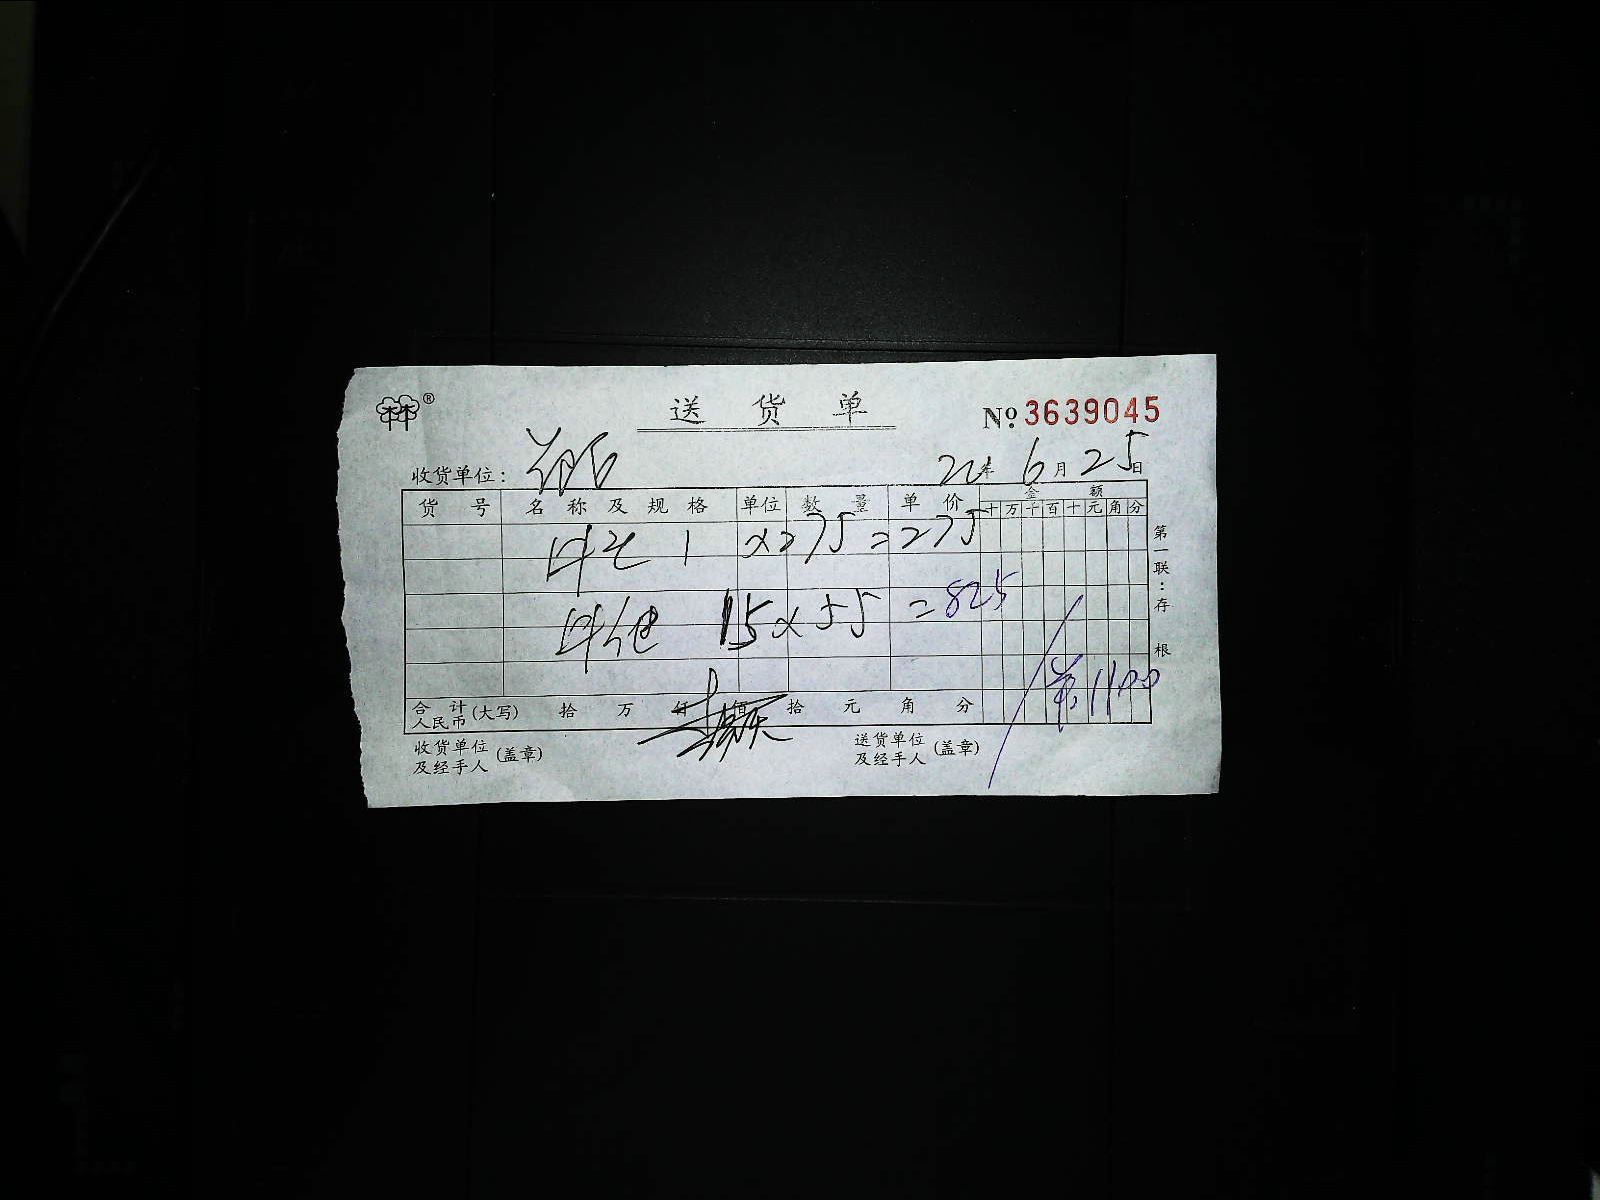 ®
送 货 单
№ 3639045
收货单位：
年 6 月 25 日
货 号 名 称 及 规 格 单位 数 量 单 价 金 额
十 万 千 百 十 元 角 分
1 ×275 = 275
15 × 55 = 825
1100
合 计
人民币 (大写) 拾 万 仟 佰 拾 元 角 分
收货单位
及经手人 (盖章)
送货单位
及经手人 (盖章)
第一联：存根